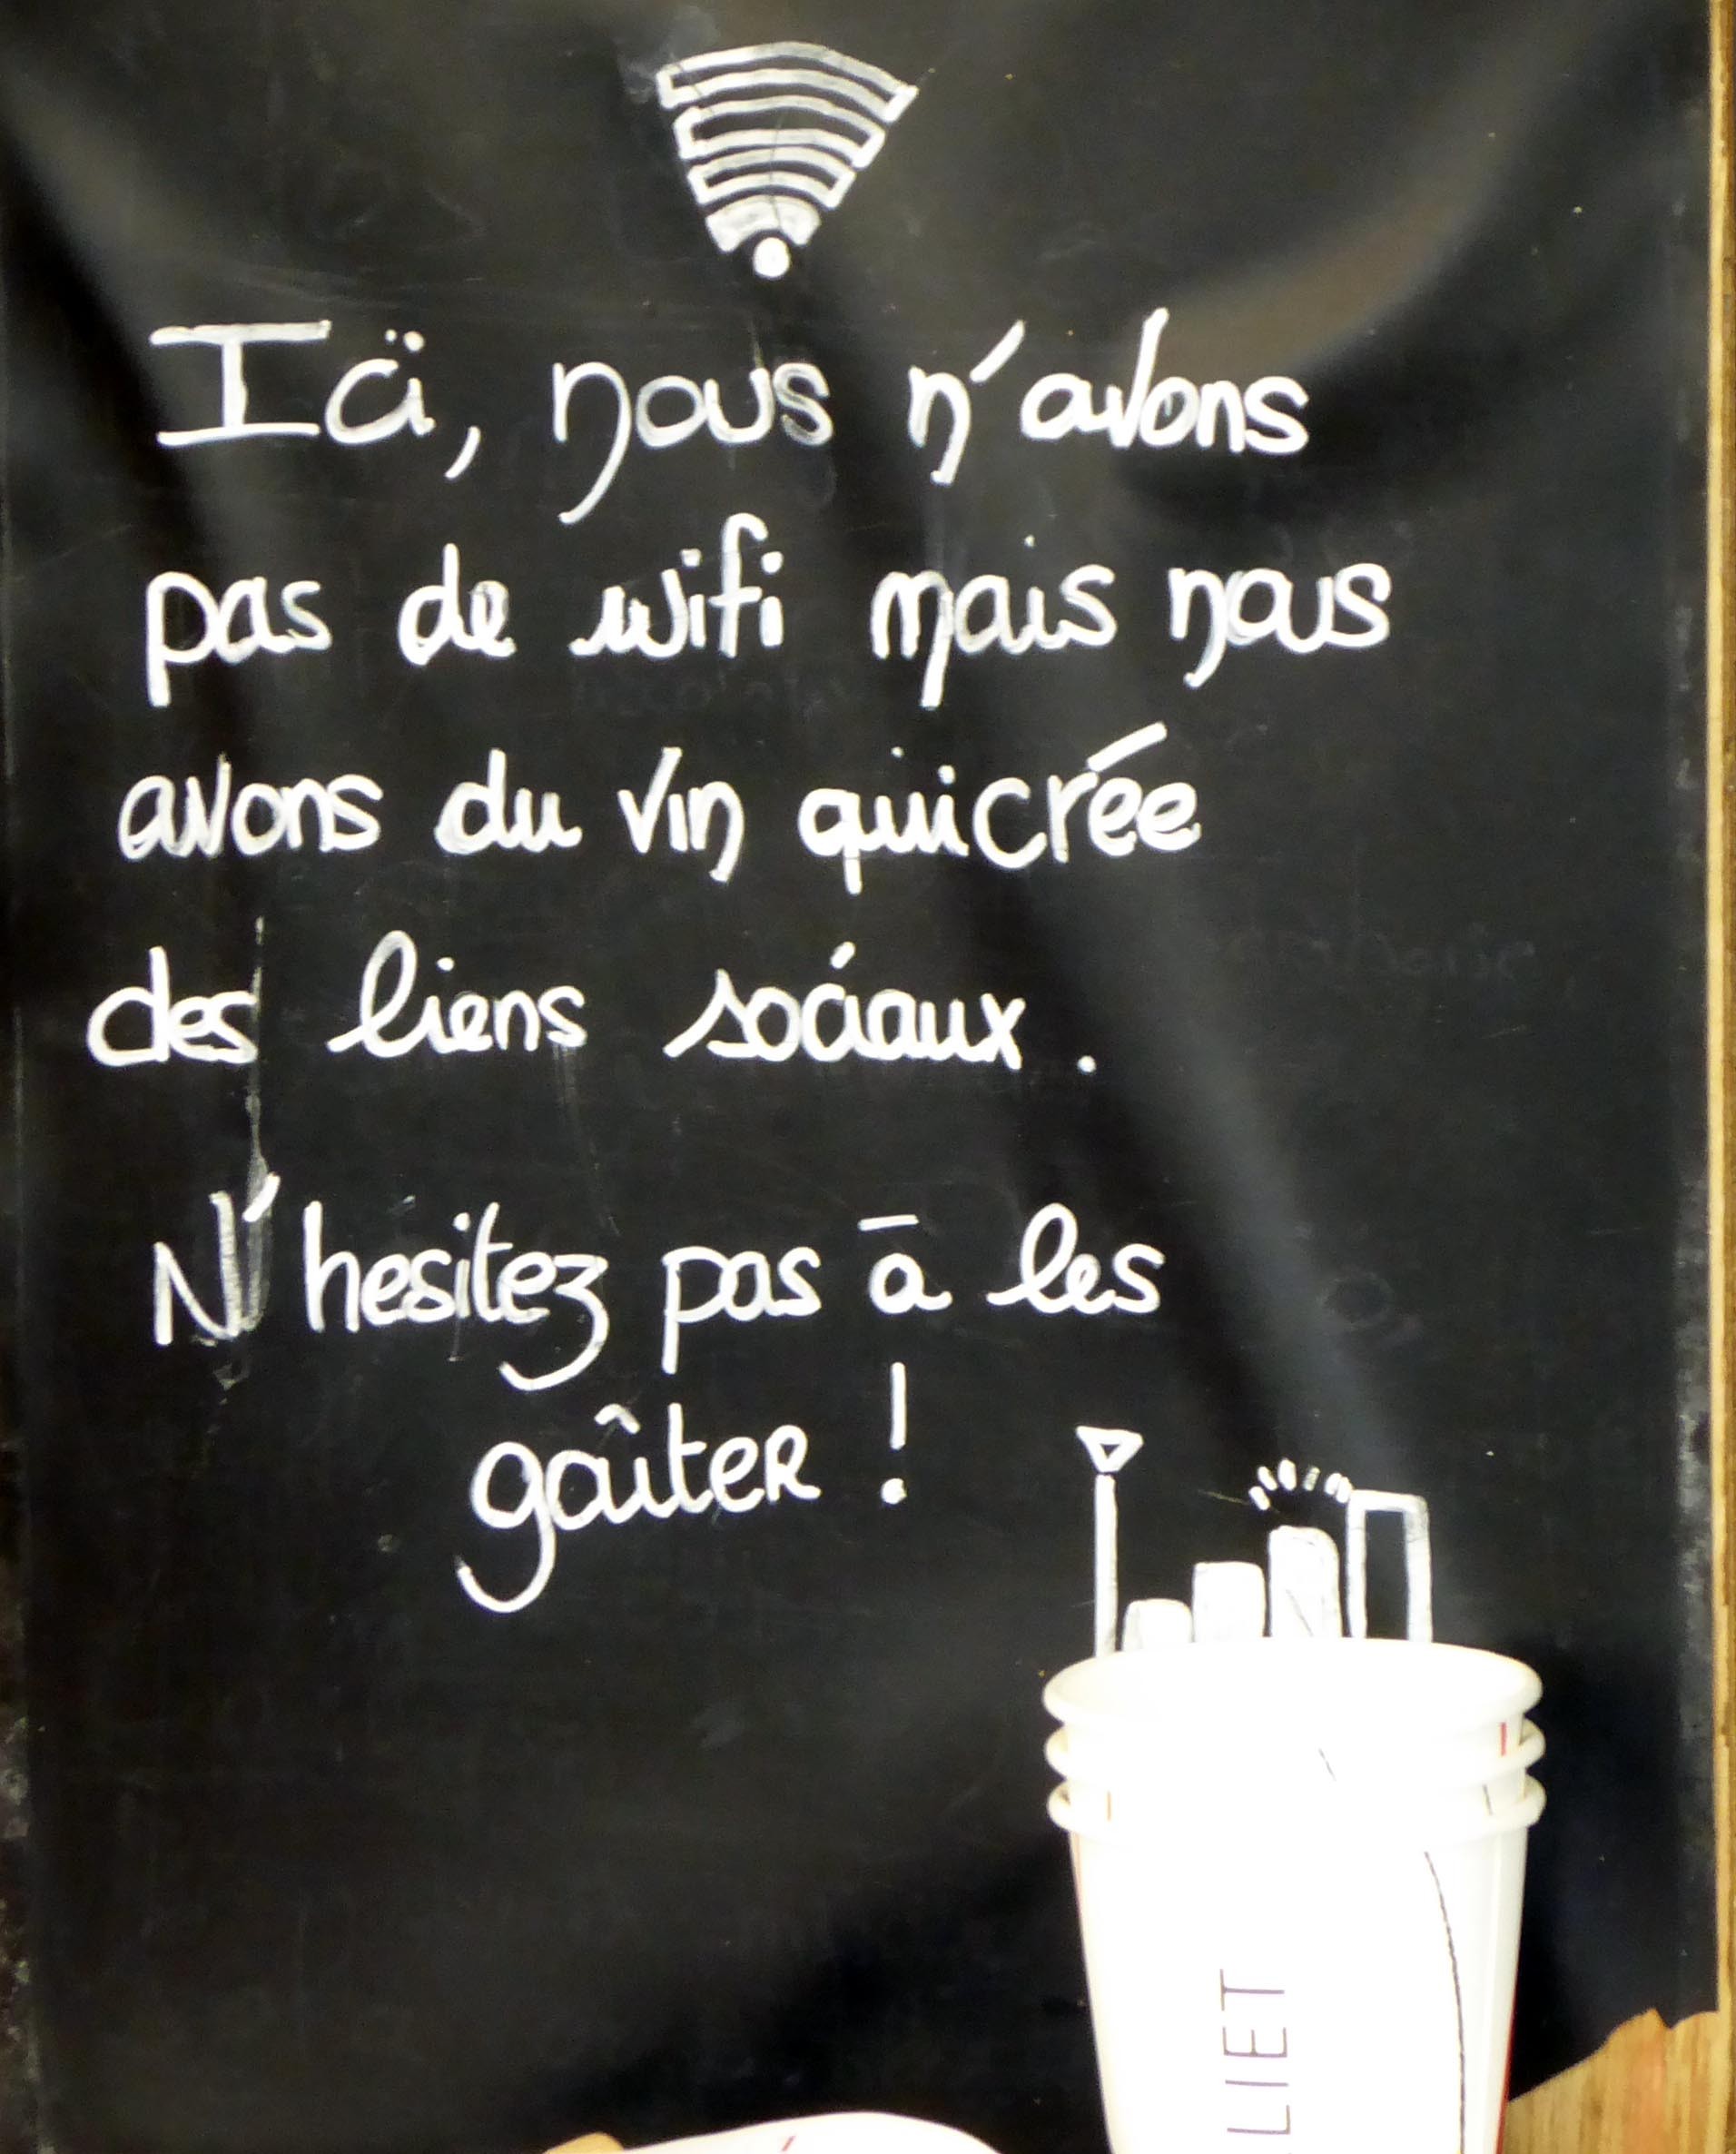 Ici, nous n'avons
pas de wifi mais nous
avons du vin qui crée
des liens sociaux.
N'hesitez pas à les
goûter !
LIET